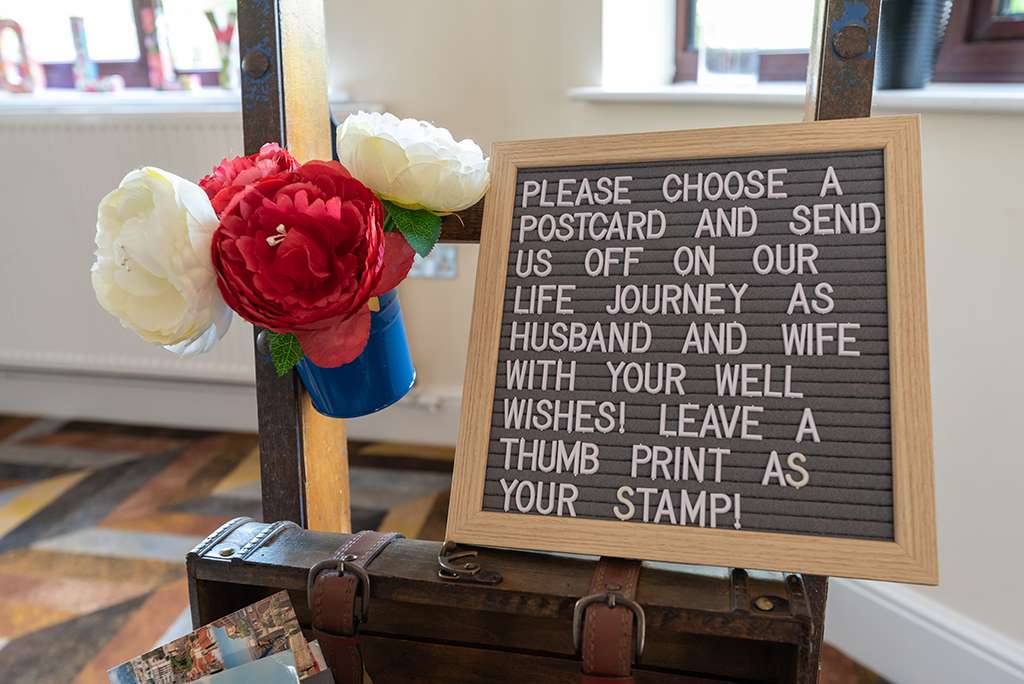 PLEASE CHOOSE A
POSTCARD AND SEND
US OFF ON OUR
LIFE JOURNEY AS
HUSBAND AND WIFE
WITH YOUR WELL
WISHES! LEAVE A
THUMB PRINT AS
YOUR STAMP!